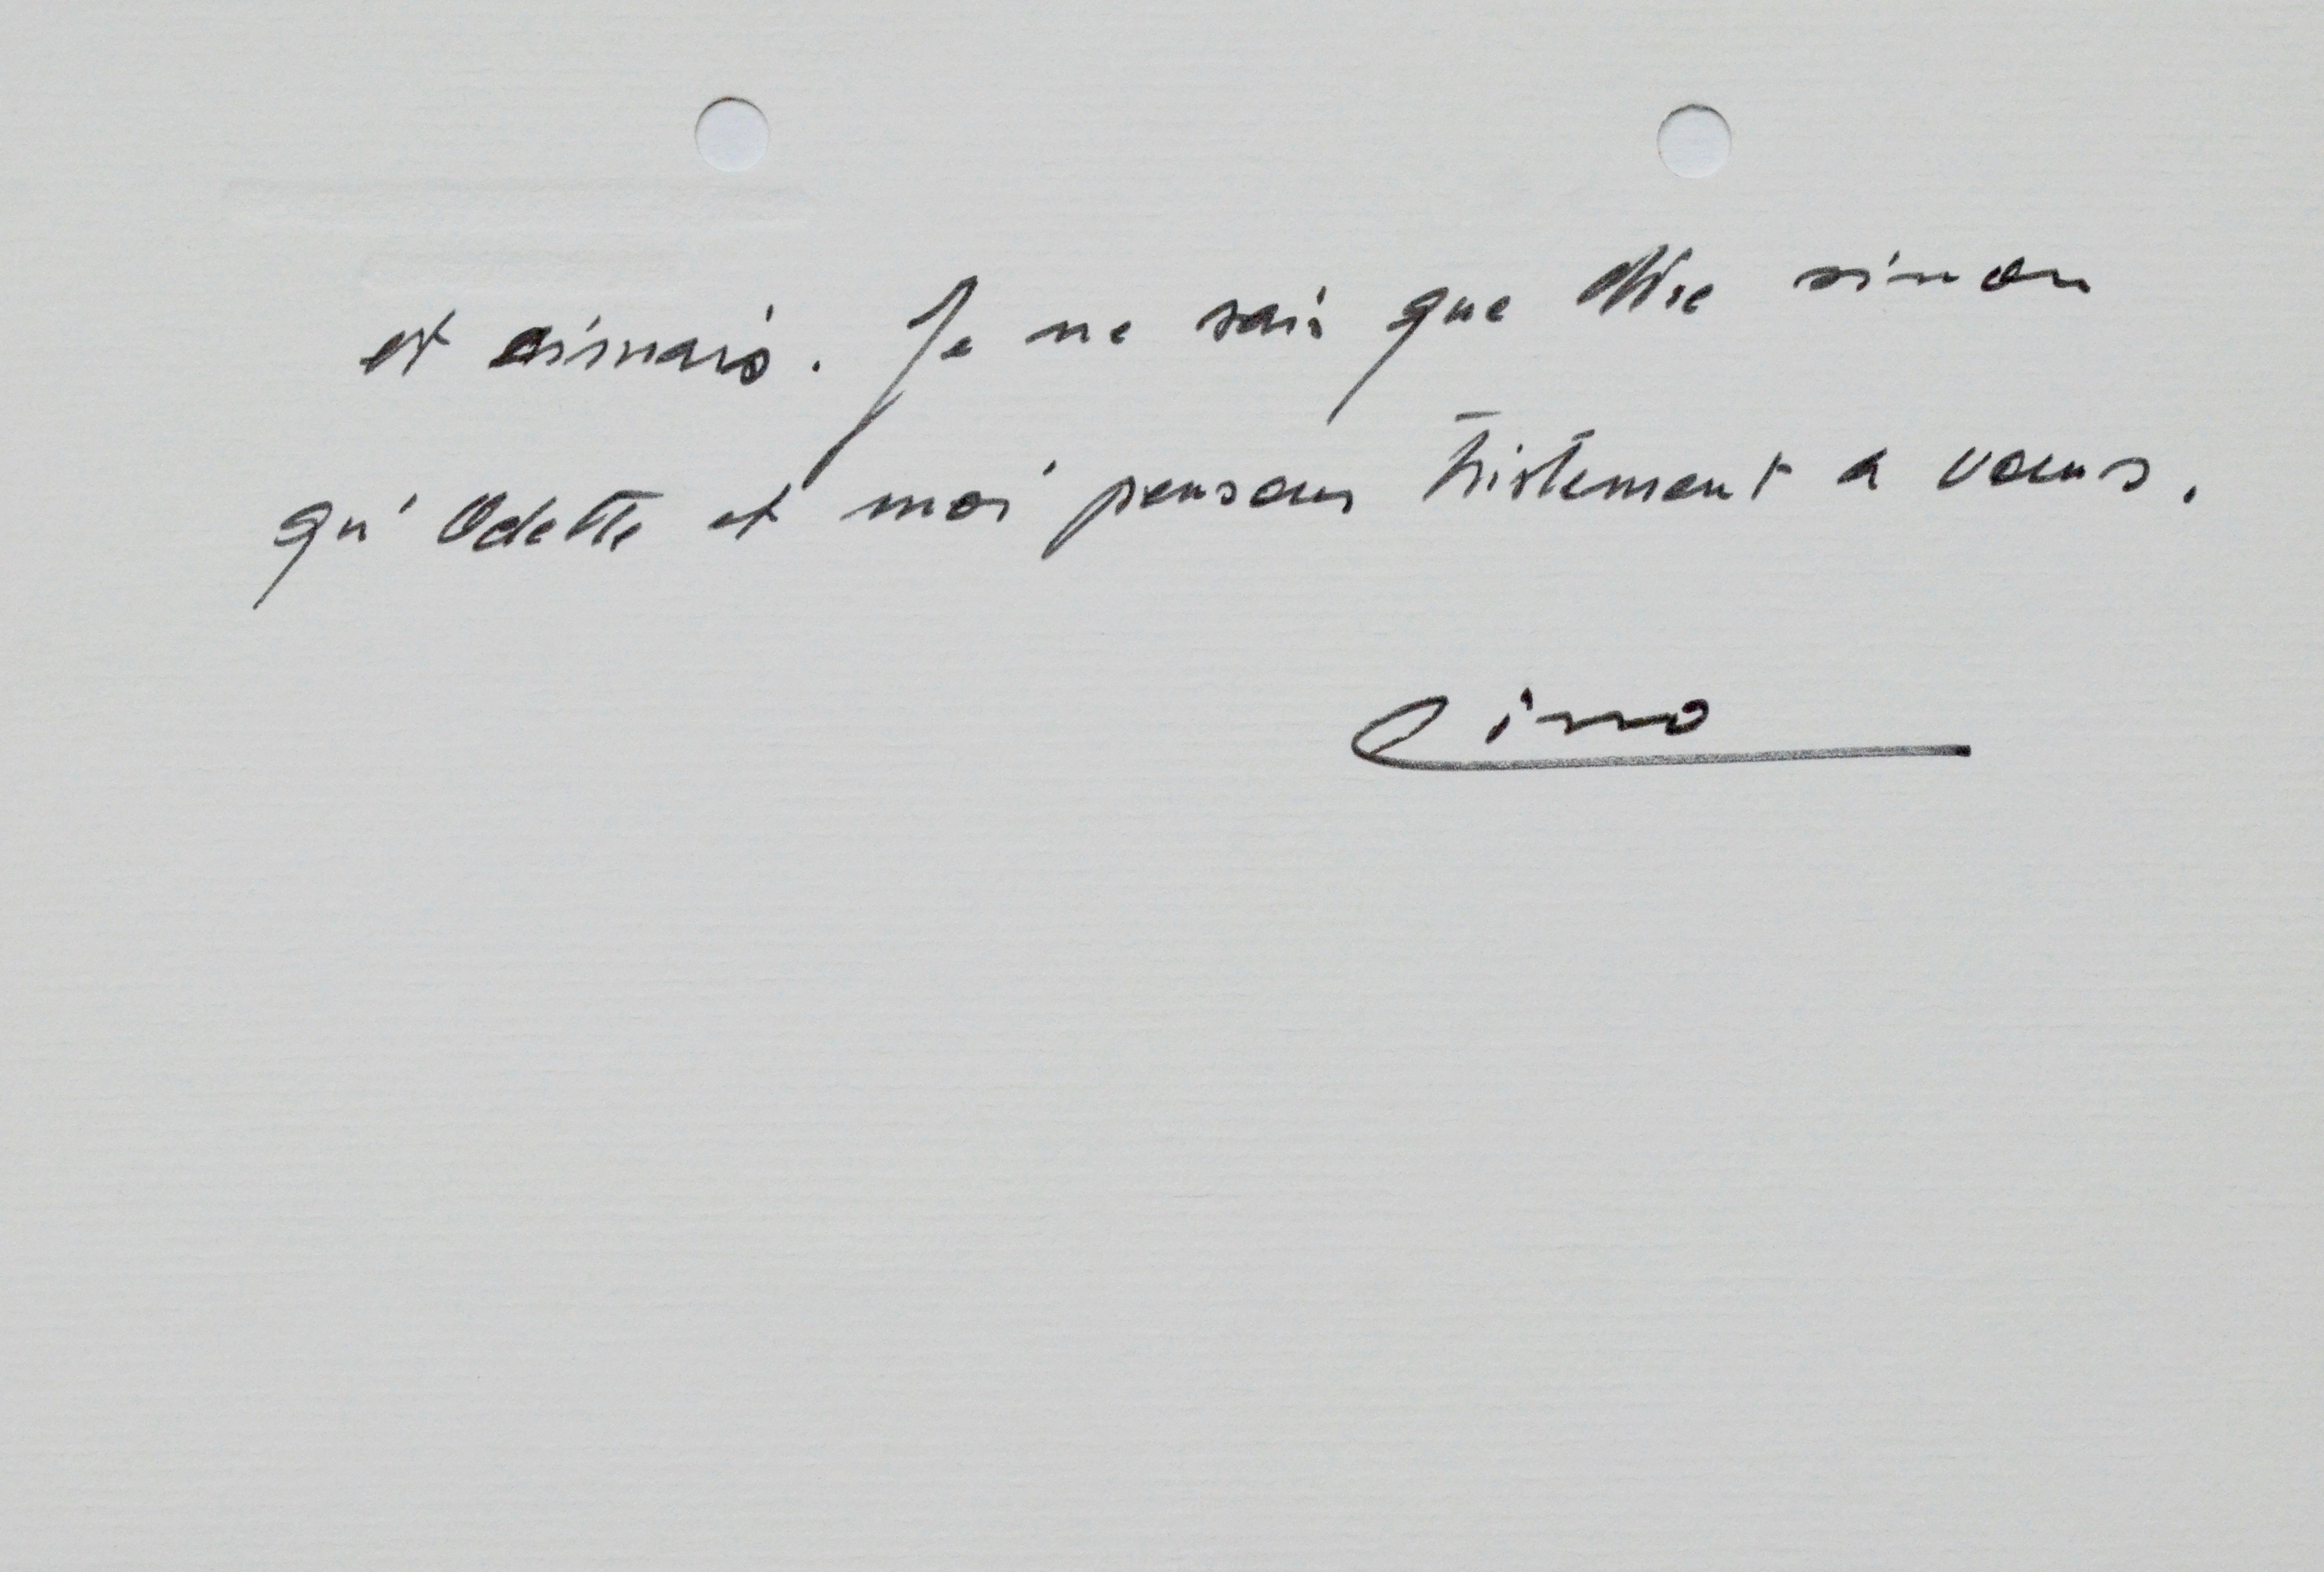 et aimais. Je ne sais que dire sinon
qu'Odette et moi pensons tristement a vous.
Cino